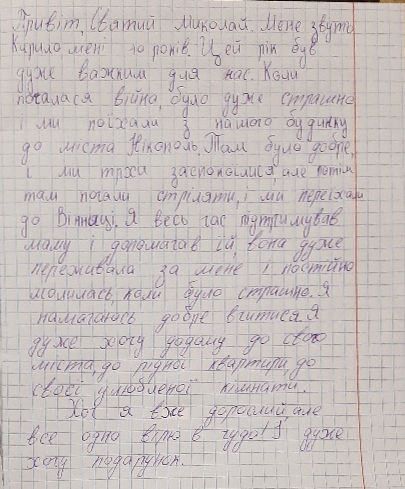 Привіт, Святий Миколай. Мене звути
Кирило мені 10 років. Цей рік був
дуже важким для нас. Коли
почалася війна, було дуже страшно
і ми поїхали з нашого будинку
до міста Нікополь. Там було добре,
і ми трхи заспокоїлися, але потім
там почали стріляти, і ми переїхали
до Вінниці. Я весь час підтримував
маму і допомагав їй, вона дуже
переживала за мене і постійно
молилась, коли було страшно. Я
намагаюсь добре вчитися. Я
дуже хочу додому до свого
міста, до рідної квартири, до
своєї улюбленої кімнати.
Хоч я вже дорослий, але
все одно вірю в чудо! І дуже
хочу подарунок.